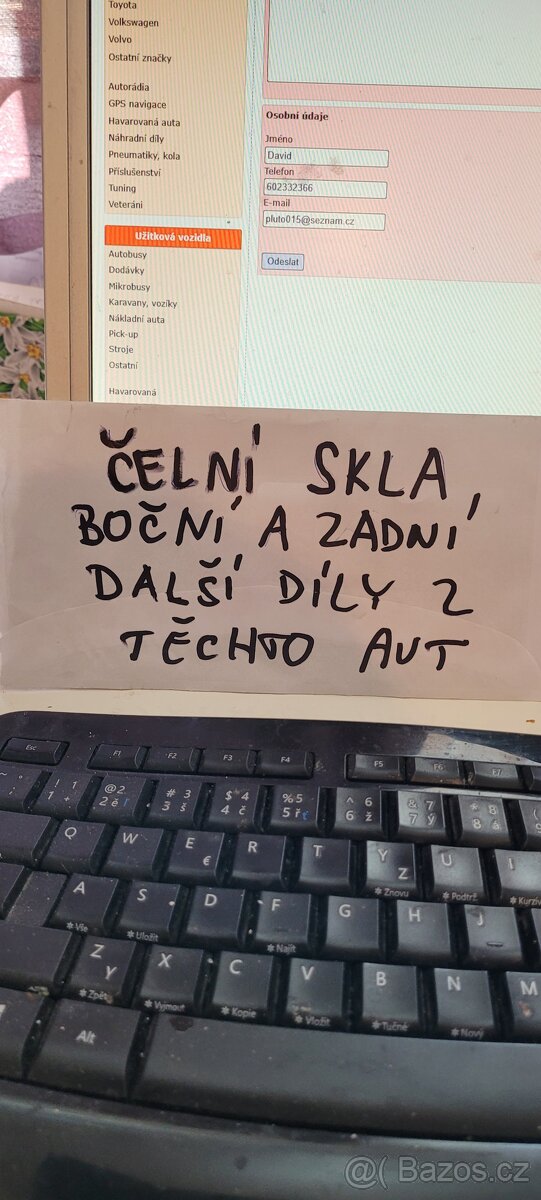 Toyota
Volkswagen
Volvo
Ostatní značky
Autorádia
GPS navigace
Havarovaná auta
Náhradní díly
Pneumatiky, kola
Příslušenství
Tuning
Veteráni
Užitková vozidla
Autobusy
Dodávky
Mikrobusy
Karavany, vozíky
Nákladní auta
Pick-up
Stroje
Ostatní
Havarovaná
Osobní údaje
Jméno
David
Telefon
602332366
E-mail
pluto015@seznam.cz
Odeslat
ČELNÍ SKLA,
BOČNÍ A ZADNÍ
DALŠÍ DÍLY Z
TĚCHTO AUT
Esc F1 F2 F3 F4 F5 F6 F7
! 1 + 1 @ 2 2 ě # 3 3 š $ 4 4 č % 5 5 ř ^ 6 6 ž & 7 7 ý * 8 8 á
Q W E € R T Y Z U I
Znovu Podtrž. Kurzív
A S D F G H J
Vše Uložit Najít
Z Y X C V B N M
Zpět Vyjmout Kopie Vložit Tučné Nový
Alt
@( Bazos.cz